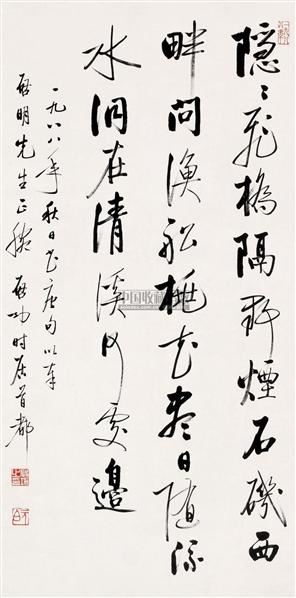 隱〻飛橋隔野煙石磯西
畔問漁船桃花盡日隨流
水洞在清溪何處邊
一九八八年秋日書唐句以奉
啟明先生正腕 啟功時居首都